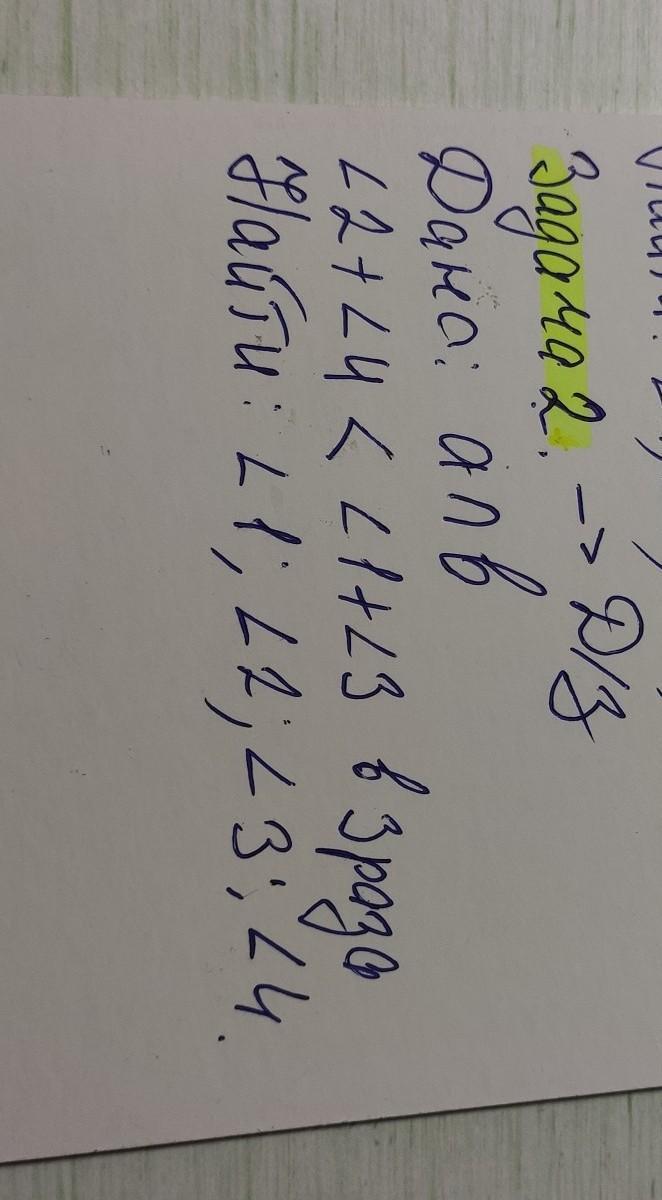 Задача 2. -> Д/З
Дано: a ∩ b
∠2 + ∠4 < ∠1 + ∠3 в 3 раза
Найти: ∠1; ∠2; ∠3; ∠4.